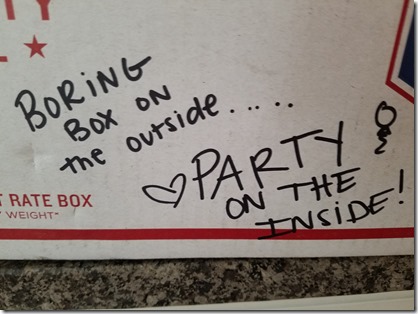 TY
L ★
BORING
BOX ON
the outside.....
♡ PARTY
ON THE
INSIDE!
T RATE BOX
WEIGHT"